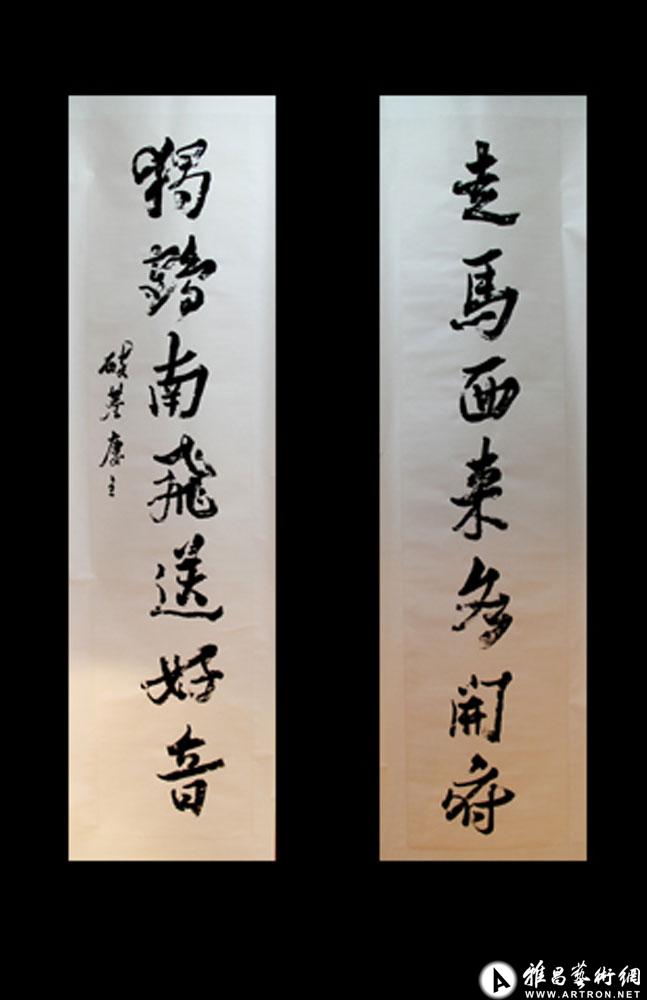 走馬西来多開府
獨鶴南飛送好音
主
雅昌藝術網
WWW.ARTRON.NET